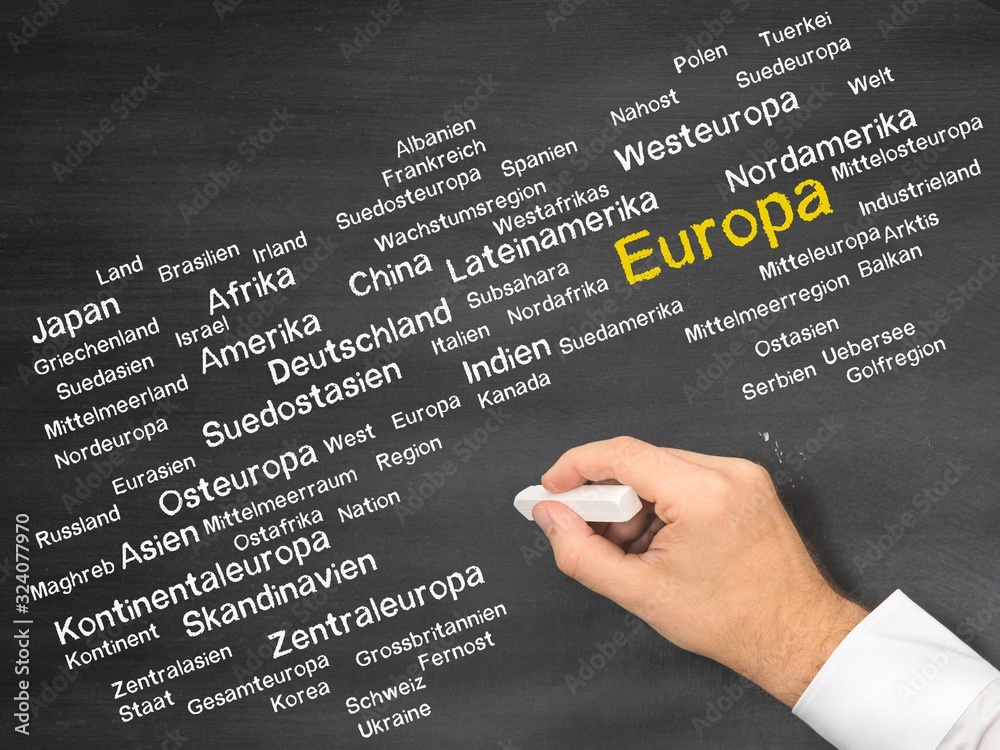 Tuerkei
Polen
Suedeuropa
Welt
Nahost
Westeuropa
Albanien
Nordamerika
Frankreich
Spanien
Mittelosteuropa
Suedosteuropa
Wachstumsregion
Westafrikas
Industrieland
Europa
Lateinamerika
Arktis
Mitteleuropa
Balkan
Land
Brasilien
Irland
China
Subsahara
Mittelmeerregion
Afrika
Nordafrika
Japan
Suedamerika
Ostasien
Griechenland
Israel
Amerika
Deutschland
Italien
Uebersee
Golfregion
Suedasien
Indien
Serbien
Mittelmeerland
Suedostasien
Kanada
Nordeuropa
Europa
West
Region
Eurasien
Osteuropa
Mittelmeerraum
Nation
Russland
Asien
Ostafrika
Maghreb
Kontinentaleuropa
Skandinavien
Kontinent
Zentraleuropa
Grossbritannien
Fernost
Zentralasien
Gesamteuropa
Staat
Korea
Schweiz
Ukraine
Adobe Stock | #324077970